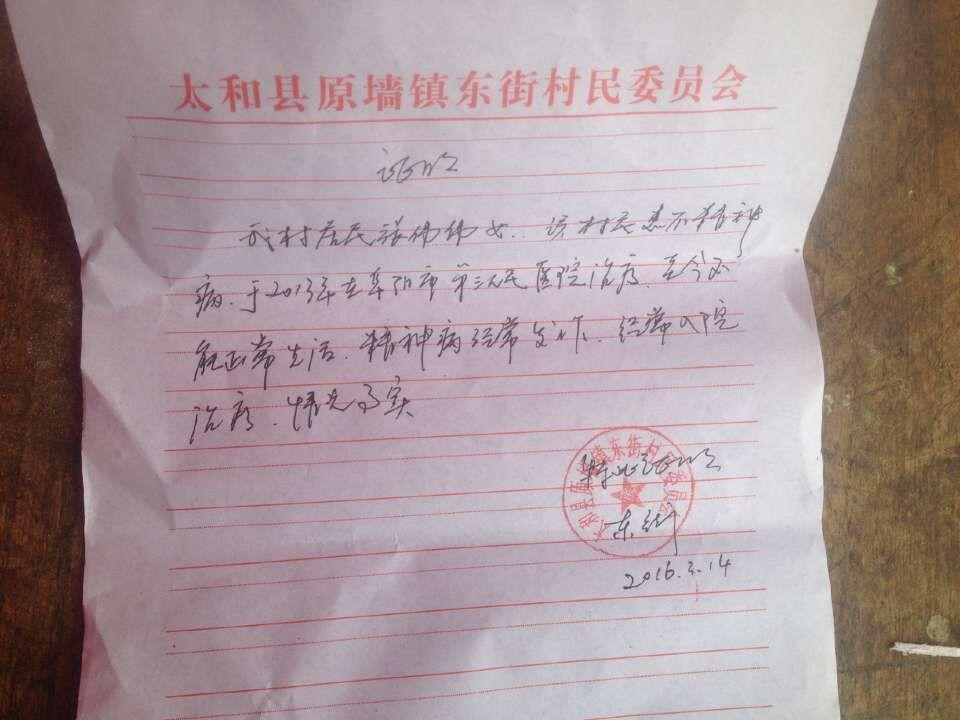 太和县原墙镇东街村民委员会
证明
我村居民张伟伟女.该村民患有精神
病.于2013年在阜阳市第三人民医院治疗.至今不
能正常生活.精神病经常发作.经常入院
治疗.情况属实
特此证明
东街
2016.3.14
太和县原墙镇东街村民委员会